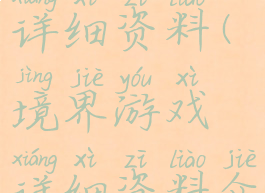 xiáng xì zī liào
详细资料(
jìng jiè yóu xì
境界游戏
xiáng xì zī liào jiè
详细资料介